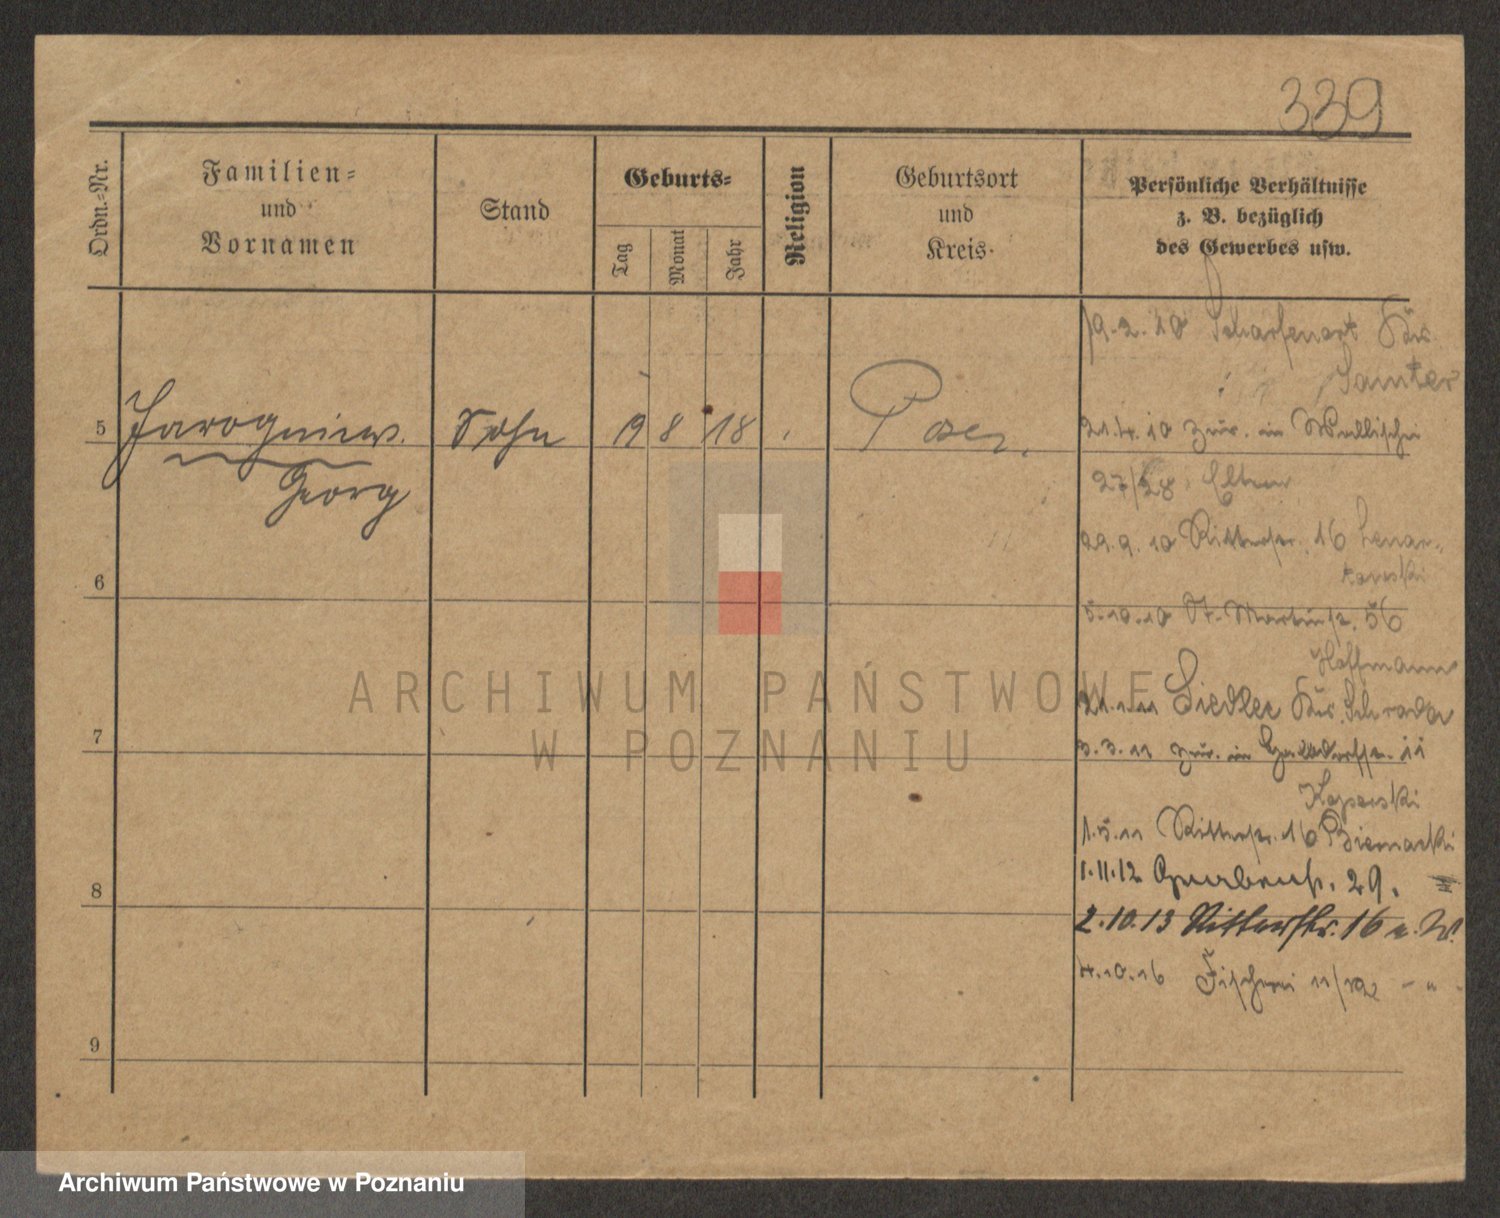 339
Ordn.-Nr.
Familien-
und
Vornamen
Stand
Geburts-
Tag
Monat
Jahr
Religion
Geburtsort
und
Kreis.
Persönliche Verhältnisse
z. B. bezüglich
des Gewerbes usw.
19.2.10 Scharfenort Krs.
Samter
5 Jarogniew. Sohn 19 8 18 Posen.
Georg
21.4.10 zur. in Wallischei
27/28
29.9.10 Ritterstr. 16
6
5.10.10 St. Martinstr. 56
Hoffmann
21.1.11 Siedlec Krs. Schroda
7
3.3.11 zur. in 11
1.5.11 Ritterstr. 16 Biernacki
8
1.11.12 29.
2.10.13 Ritterstr. 16 u. W.
4.10.16 Fischerei 11/12 - " -
9
ARCHIWUM PAŃSTWOWE
W POZNANIU
Archiwum Państwowe w Poznaniu